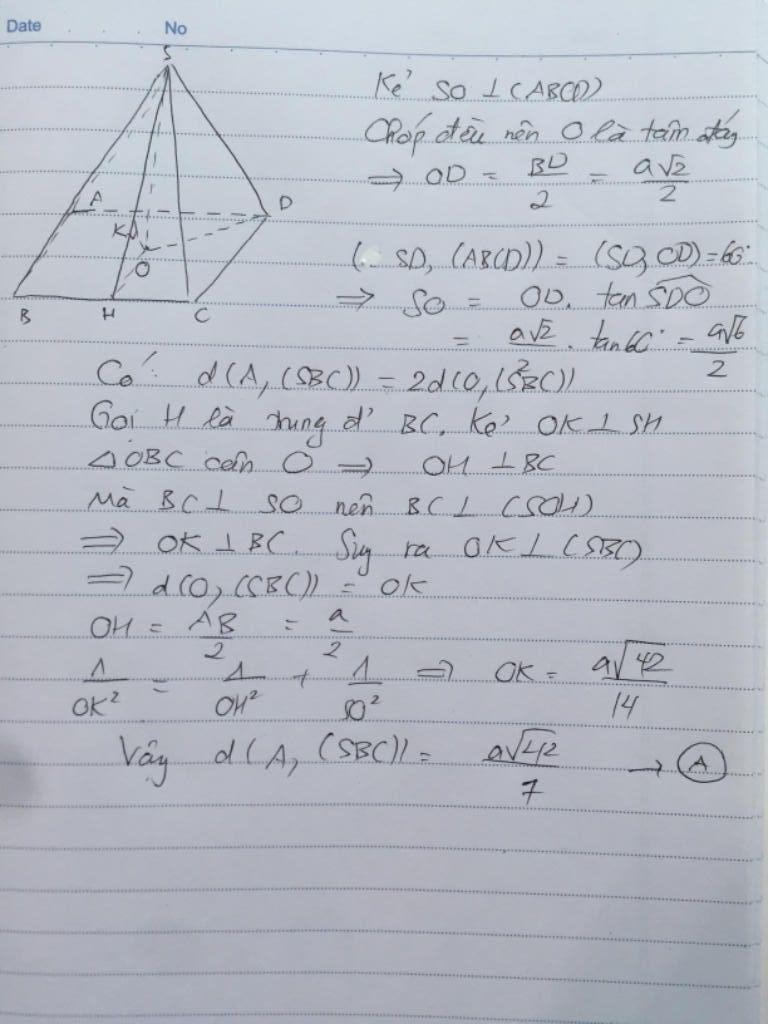 Date No
S
A
D
K
O
B H C
Kẻ SO ⊥ (ABCD)
Chóp đều nên O là tâm đáy
⇒ OD = BD/2 = a√2/2
(SD, (ABCD)) = (SD, OD) = 60°
⇒ SO = OD. tan SDO
= a√2/2 . tan60° = a√6/2
Có: d(A, (SBC)) = 2d(O, (SBC))
Gọi H là trung đ' BC. Kẻ OK ⊥ SH
△OBC cân O ⇒ OH ⊥ BC
Mà BC ⊥ SO nên BC ⊥ (SOH)
⇒ OK ⊥ BC. Suy ra OK ⊥ (SBC)
⇒ d(O, (SBC)) = OK
OH = AB/2 = a/2
1/OK² = 1/OH² + 1/SO² ⇒ OK = a√42/14
Vậy d(A, (SBC)) = a√42/7 → A